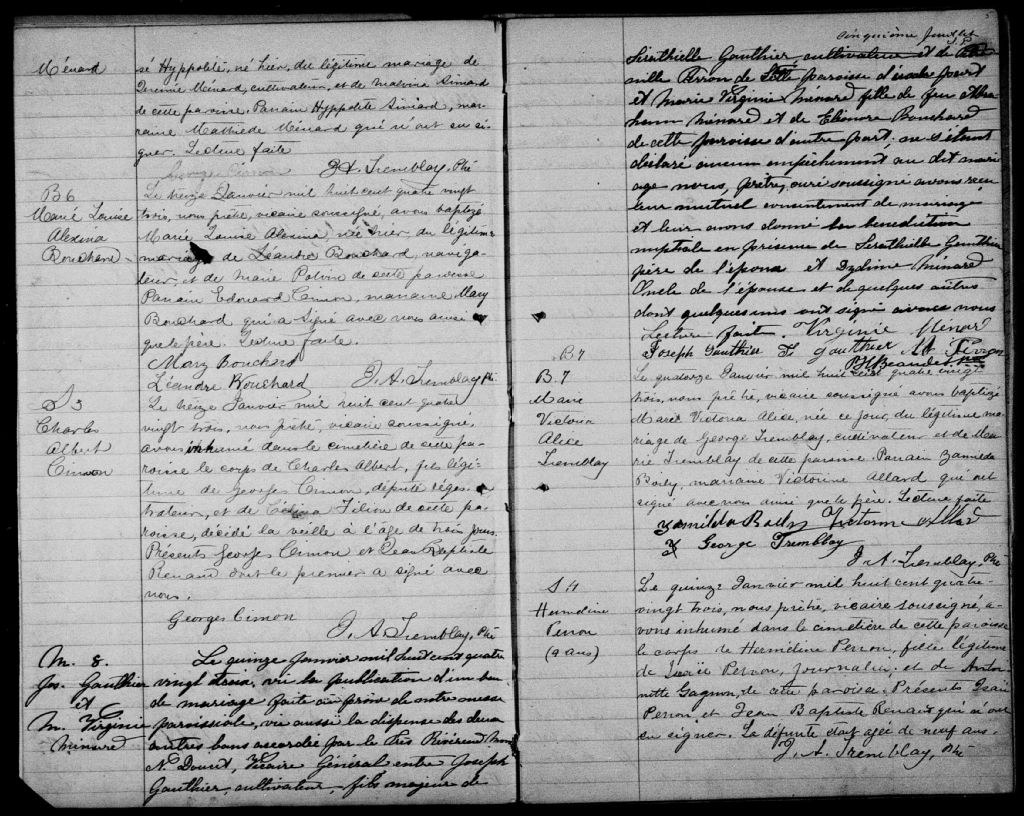 Ménard
né Hyppolite, né hier, du légitime mariage de
Ménard, cultivateur, et de Malvina Simard
de cette paroisse. Parrain Hyppolite Simard, mar-
raine Mathilde Ménard qui n'ont su si-
gner. Lecture faite
Georges Cimon
J. A. Tremblay, Ptre
B 6
Marie Louise
Alexina
Bouchard
Le treize Janvier mil huit cent quatre vingt
trois, nous prêtre, vicaire soussigné, avons baptizé
Marie Louise Alexina, née hier du légitime
mariage de Léandre Bouchard, naviga-
teur, et de Marie Potvin de cette paroisse
Parrain Edouard Cimon, marraine Mary
Bouchard qui a signé avec nous ainsi
que le père. Lecture faite.
Mary Bouchard
Léandre Bouchard
J. A. Tremblay Ptre
S 3
Charles
Albert
Cimon
Le treize Janvier mil huit cent quatre
vingt trois, nous prêtre, vicaire soussigné,
avons inhumé dans le cimetière de cette pa-
roisse le corps de Charles Albert, fils légi-
time de Georges Cimon, député régis-
trateur, et de Filion de cette pa-
roisse, décédé la veille à l'âge de trois jours
Présents Georges Cimon et Jean Baptiste
Renaud dont le premier a signé avec
nous.
Georges Cimon
J. A. Tremblay, Ptre
M. 8.
Jos. Gauthier
et
M. Virginie
Ménard
Le quinze Janvier mil huit cent quatre
vingt trois, vu la publication d'un ban
de mariage faite au prône de notre messe
paroissiale, vu aussi la dispense des deux
autres bans accordée par le Très Révérend Mon
N. Doucet, Vicaire Général entre Joseph
Gauthier, cultivateur, fils majeur de
Cinquième feuillet
5
Serthille Gauthier cultivateur et de
Perron de cette paroisse d'une part
et Marie Virginie Ménard fille de feu Abra
ham Ménard et de Elénore Bouchard
de cette paroisse d'autre part; ne s'étant
déclaré aucun empêchement au dit mari
age nous, prêtre, curé soussigné avons reçu
leur mutuel consentement de mariage
et leur avons donné la bénédiction
nuptiale en présence de Serthille Gauthier
père de l'époux et Ménard
Oncle de l'épouse et de quelques autres
dont quelques uns ont signé avec nous
Lecture faite. Virginie Ménard
Joseph Gauthier
gauthier
Perron
B. 7
B. 7
Marie
Victoria
Alice
Tremblay
Le quatorze Janvier mil huit cent quatre vingt
trois, nous prêtre, vicaire soussigné avons baptizé
Marie Victoria Alice, née ce jour, du légitime ma-
riage de George Tremblay, cultivateur et de Ma-
rie Tremblay de cette paroisse. Parrain
Boily, marraine Victorine Allard qui ont
signé avec nous ainsi que le père. Lecture faite
Boily Victorine Allard
X George Tremblay
J. A. Tremblay, Ptre
S. 4
Herméline
Perron
(9 ans)
Le quinze Janvier mil huit cent quatre-
vingt trois, nous prêtre, vicaire soussigné, a-
vons inhumé dans le cimetière de cette paroisse
le corps de Herméline Perron, fille légitime
de Isaïe Perron, journalier, et de Antoi-
nette Gagnon, de cette paroisse. Présents Isaïe
Perron, et Jean Baptiste Renaud qui n'ont
su signer. La défunte était agée de neuf ans.
J. A. Tremblay, Ptre